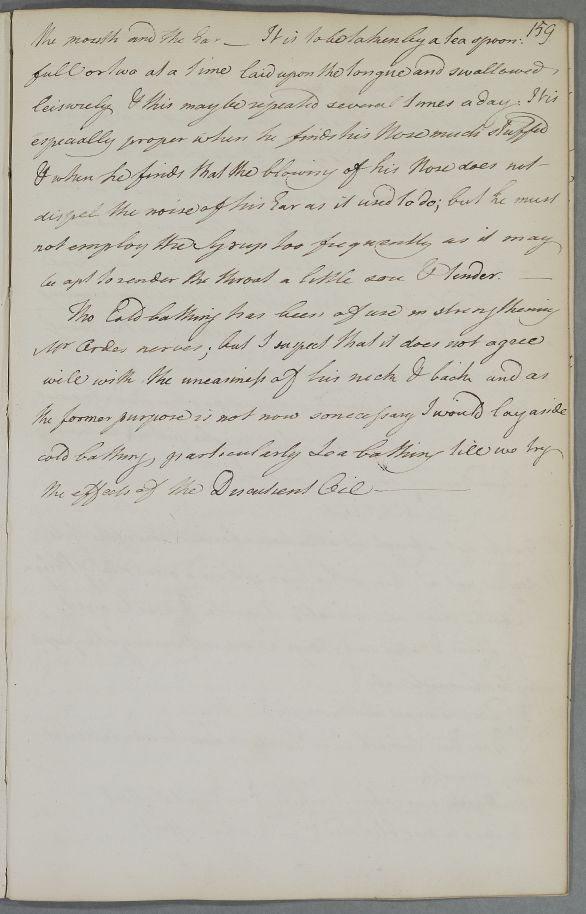 159
the mouth and the Ear — It is to be taken by a tea spoon:
full or two at a time laid upon the tongue and swallowed
leisurely & this may be repeated several times a day. It is
especially proper when he finds his Nose much stuffed
& when he finds that the blowing of his Nose does not
dispel the noise of his Ear as it used to do; but he must
not employ the Syrup too frequently as it may
be apt to render the throat a little sore & tender. —
Tho Cold bathing has been of use in strengthening
Mr Ordes nerves; but I suspect that it does not agree
well with the uneasiness of his neck & back and as
the former purpose is not now so necessary I would lay aside
cold bathing, particularly Sea bathing till we try
the effects of the Discutient Oil —